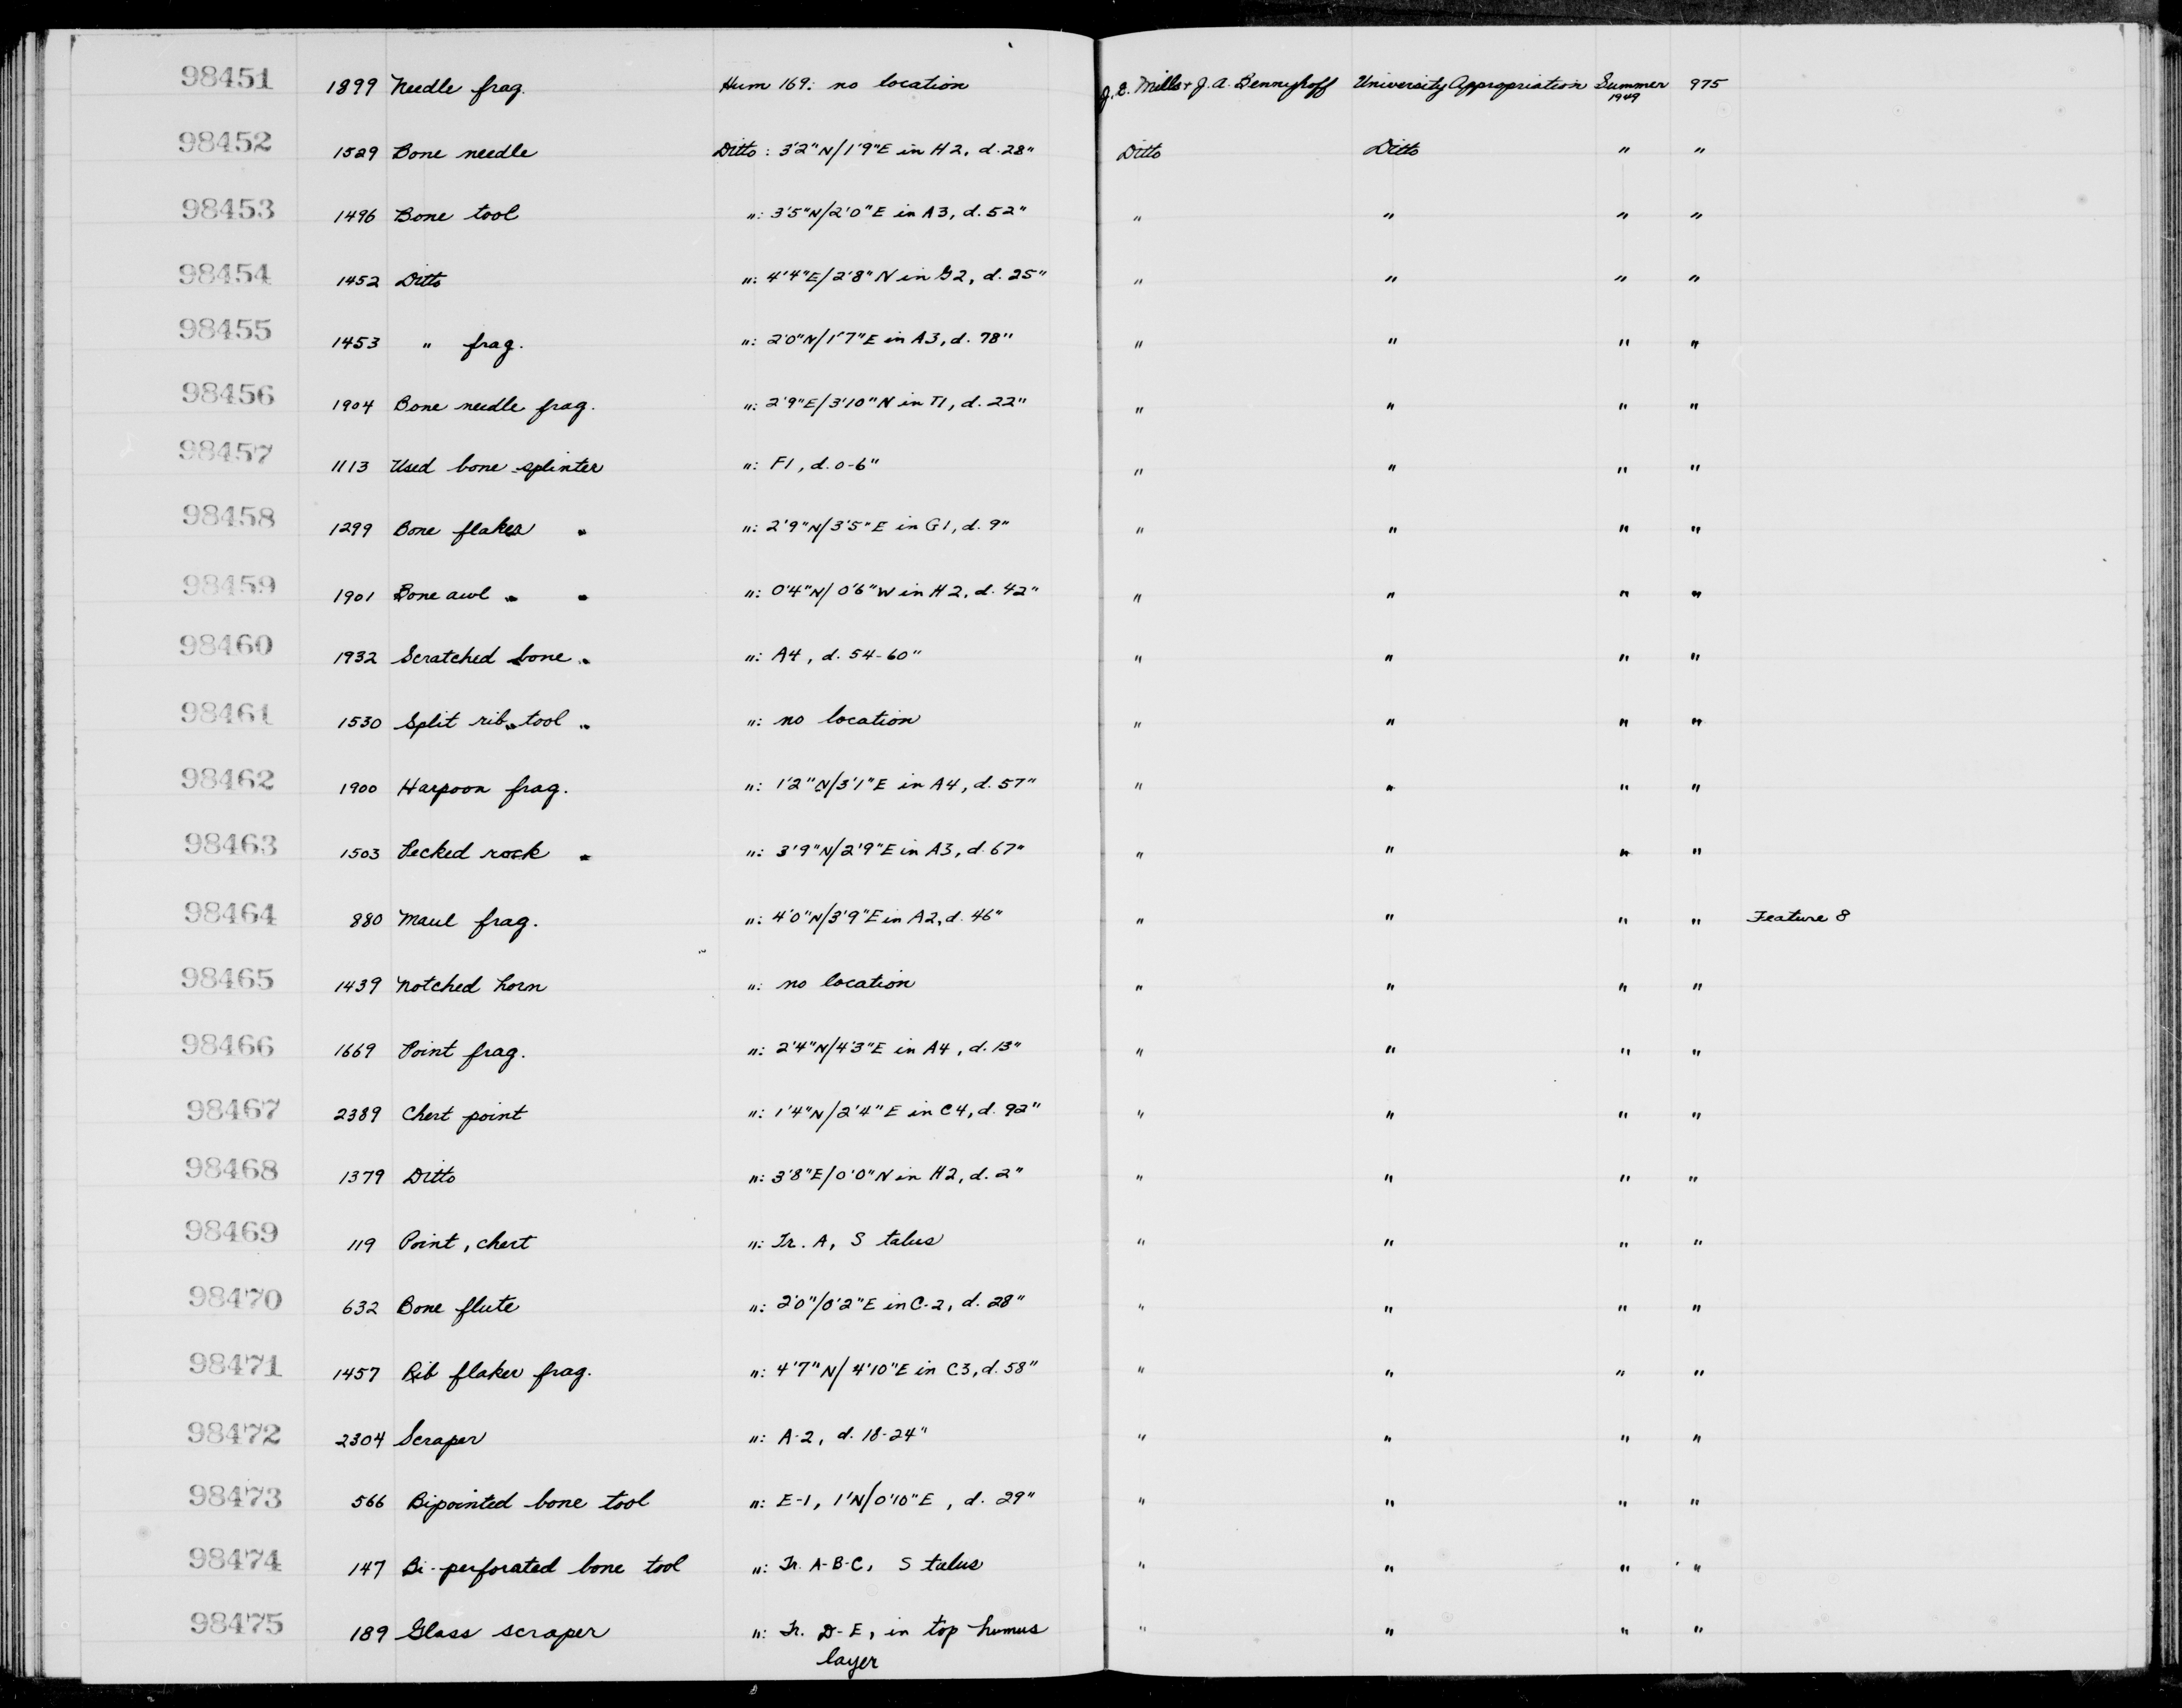 98451 1899 Needle frag. Hum 169: no location J. E. Mills + J. A. Bennyhoff University Appropriation Summer 1949 975
98452 1529 Bone needle Ditto: 3'2"N/1'9"E in H2, d. 28" Ditto Ditto " "
98453 1496 Bone tool ": 3'5"N/2'0"E in A3, d. 52" " " " "
98454 1452 Ditto ": 4'4"E/2'8"N in G2, d. 25" " " " "
98455 1453 " frag. ": 2'0"N/1'7"E in A3, d. 78" " " " "
98456 1904 Bone needle frag. ": 2'9"E/3'10"N in T1, d. 22" " " " "
98457 1113 Used bone splinter ": F1, d. 0-6" " " " "
98458 1299 Bone flaker ": 2'9"N/3'5"E in G1, d. 9" " " " "
98459 1901 Bone awl ": 0'4"N/0'6"W in H2, d. 42" " " " "
98460 1932 Scratched bone ": A4, d. 54-60" " " " "
98461 1530 Split rib tool ": no location " " " "
98462 1900 Harpoon frag. ": 1'2"N/3'1"E in A4, d. 57" " " " "
98463 1503 Pecked rock ": 3'9"N/2'9"E in A3, d. 67" " " " "
98464 880 Maul frag. ": 4'0"N/3'9"E in A2, d. 46" " " " " Feature 8
98465 1439 Notched horn ": no location " " " "
98466 1669 Point frag. ": 2'4"N/4'3"E in A4, d. 13" " " " "
98467 2389 Chert point ": 1'4"N/2'4"E in C4, d. 92" " " " "
98468 1379 Ditto ": 3'8"E/0'0"N in H2, d. 2" " " " "
98469 119 Point, chert ": Tr. A, S talus " " " "
98470 632 Bone flute ": 2'0"/0'2"E in C-2, d. 28" " " " "
98471 1457 Rib flaker frag. ": 4'7"N/4'10"E in C3, d. 58" " " " "
98472 2304 Scraper ": A-2, d. 18-24" " " " "
98473 566 Bipointed bone tool ": E-1, 1'N/0'10"E, d. 29" " " " "
98474 147 Bi-perforated bone tool ": Tr. A-B-C, S talus " " " "
98475 189 Glass scraper ": Tr. D-E, in top humus " " " "
layer